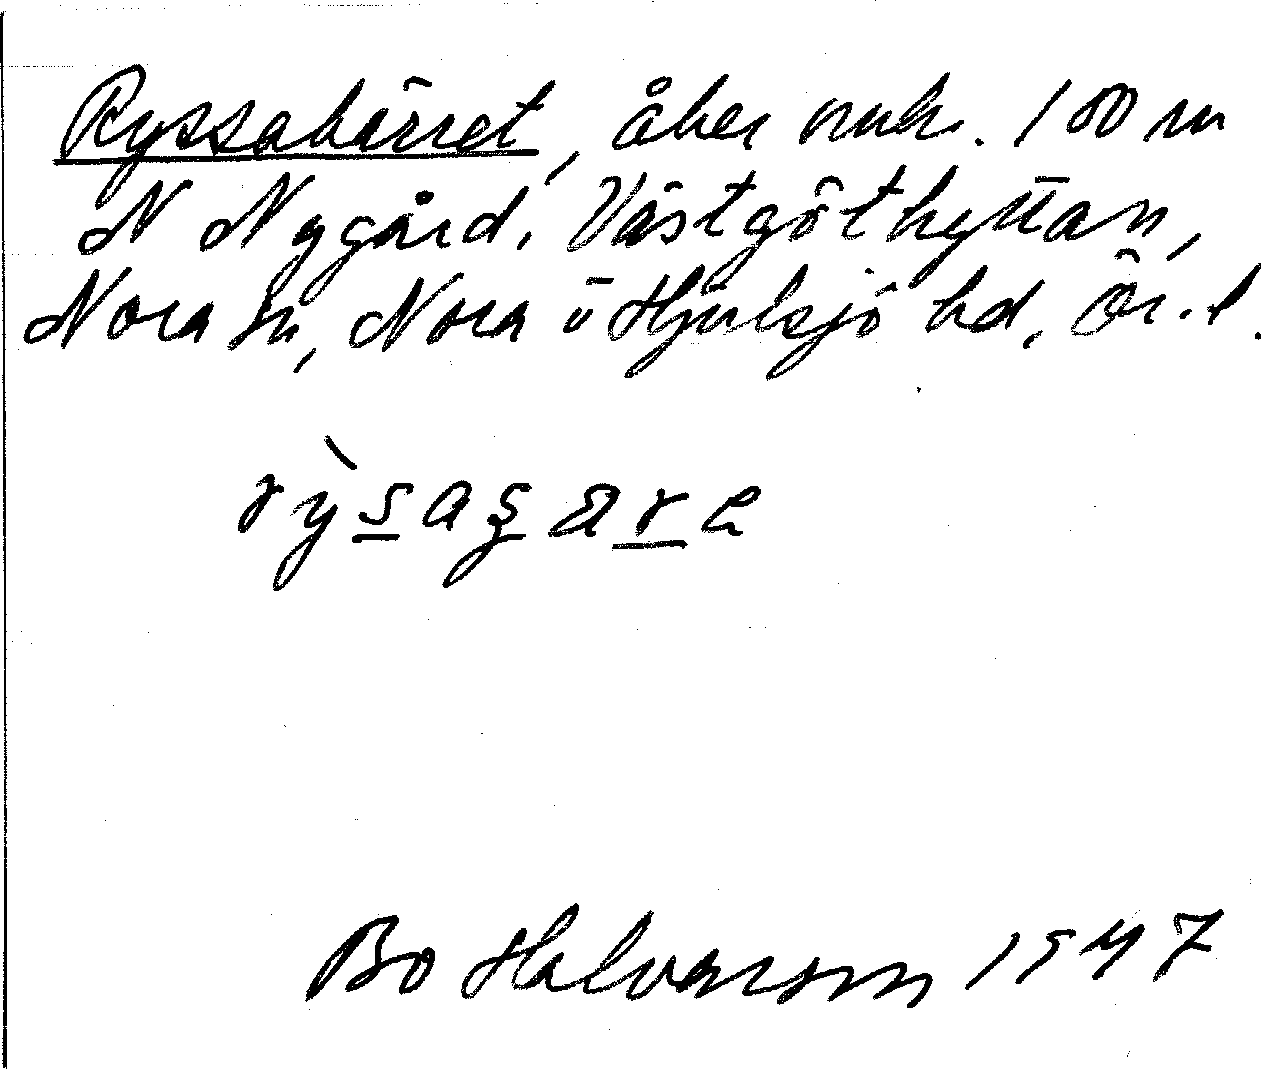 Ryssakärret, åker omkr. 100 m
N Nygård, Västgöthyttan,
Nora sn, Nora o Hjulsjö hd, Ör. l.
Bo Halvarson 1947